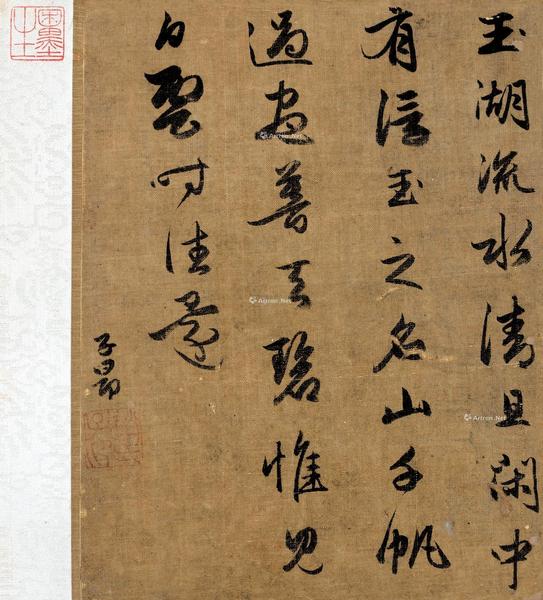 玉湖流水清且閑中
有浮玉之名山千帆
過盡暮天碧惟見
白雲時往還
子昂
Artron.Net
Artron.Net
Artron.Net